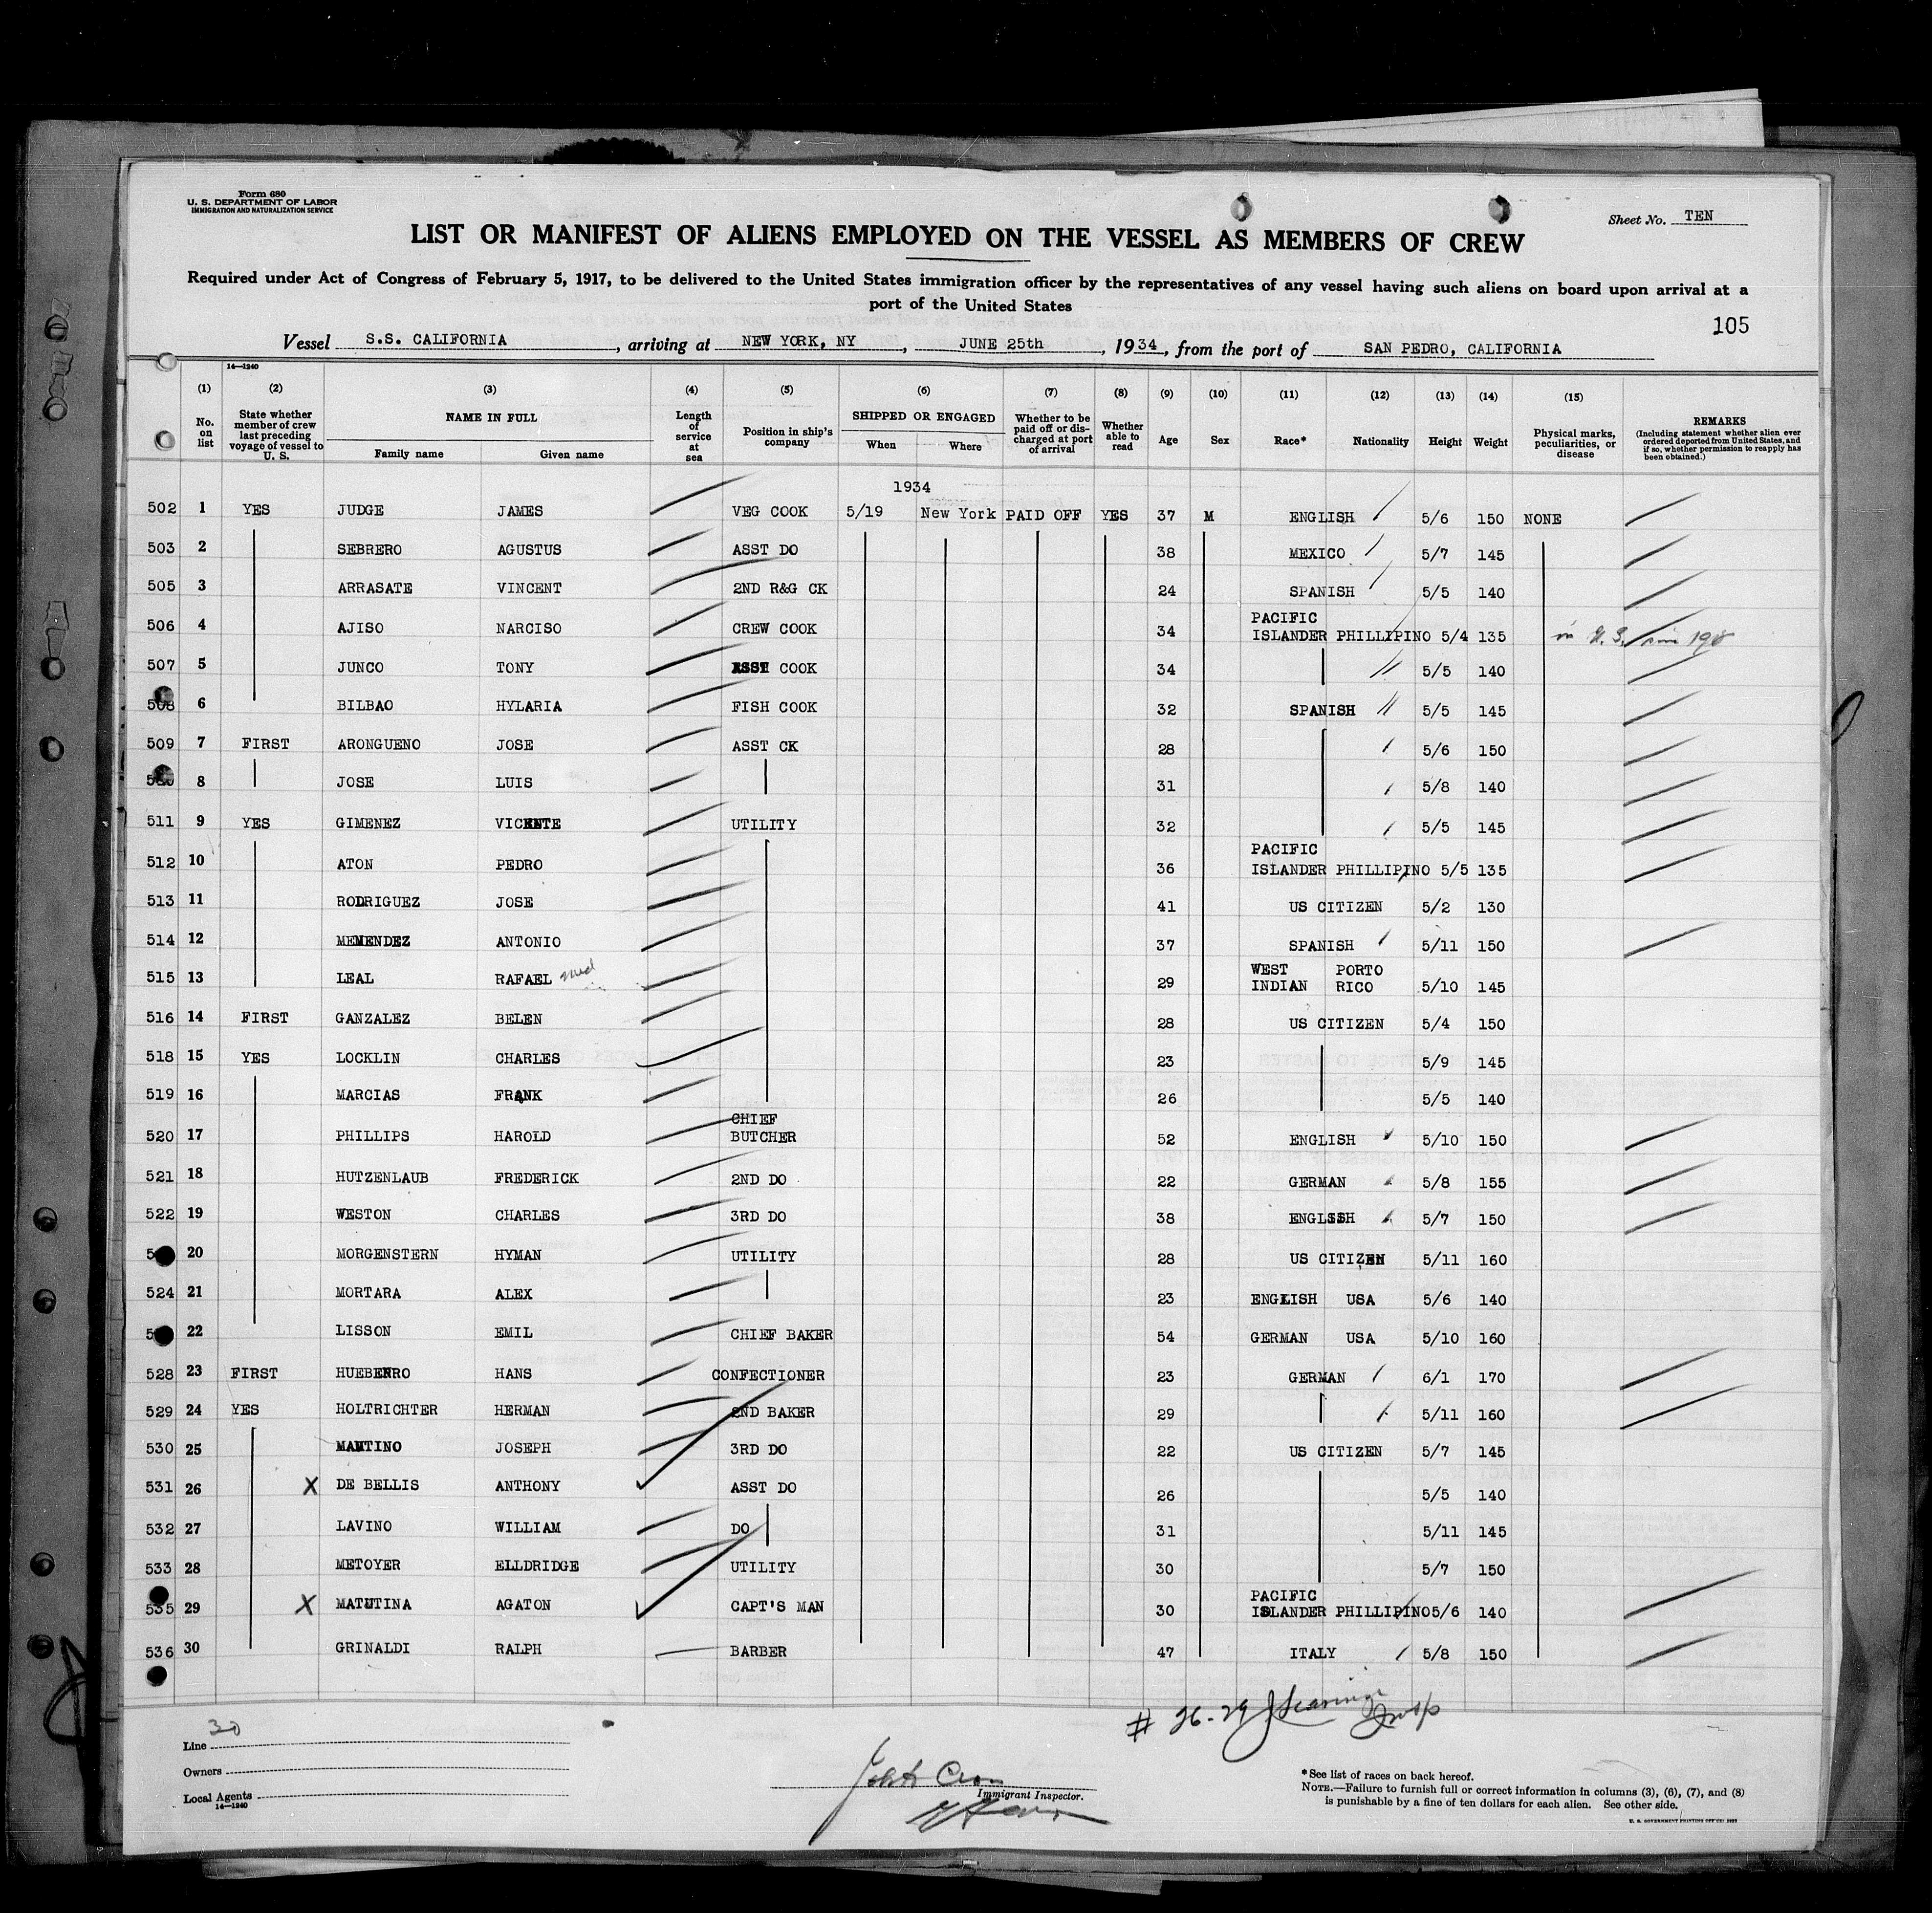 Form 680
U. S. DEPARTMENT OF LABOR
IMMIGRATION AND NATURALIZATION SERVICE
Sheet No. TEN
LIST OR MANIFEST OF ALIENS EMPLOYED ON THE VESSEL AS MEMBERS OF CREW
Required under Act of Congress of February 5, 1917, to be delivered to the United States immigration officer by the representatives of any vessel having such aliens on board upon arrival at a
port of the United States
105
Vessel S.S. CALIFORNIA, arriving at NEW YORK, NY, JUNE 25th, 1934, from the port of SAN PEDRO, CALIFORNIA
14—1240
(1) (2) (3) (4) (5) (6) (7) (8) (9) (10) (11) (12) (13) (14) (15)
No. on list
State whether member of crew last preceding voyage of vessel to U. S.
NAME IN FULL
Family name Given name
Length of service at sea
Position in ship's company
SHIPPED OR ENGAGED
When Where
Whether to be paid off or discharged at port of arrival
Whether able to read
Age
Sex
Race*
Nationality
Height
Weight
Physical marks, peculiarities, or disease
REMARKS
(Including statement whether alien ever ordered deported from United States, and if so, whether permission to reapply has been obtained.)
1934
502 1 YES JUDGE JAMES VEG COOK 5/19 New York PAID OFF YES 37 M ENGLISH 5/6 150 NONE
503 2 SEBRERO AGUSTUS ASST DO 38 MEXICO 5/7 145
505 3 ARRASATE VINCENT 2ND R&G CK 24 SPANISH 5/5 140
506 4 AJISO NARCISO CREW COOK 34 PACIFIC ISLANDER PHILLIPINO 5/4 135 in U.S. since
507 5 JUNCO TONY ASST COOK 34 5/5 140
508 6 BILBAO HYLARIA FISH COOK 32 SPANISH 5/5 145
509 7 FIRST ARONGUENO JOSE ASST CK 28 5/6 150
8 JOSE LUIS 31 5/8 140
511 9 YES GIMENEZ VICENTE UTILITY 32 5/5 145
512 10 ATON PEDRO 36 PACIFIC ISLANDER PHILLIPINO 5/5 135
513 11 RODRIGUEZ JOSE 41 US CITIZEN 5/2 130
514 12 MENENDEZ ANTONIO 37 SPANISH 5/11 150
515 13 LEAL RAFAEL 29 WEST INDIAN PORTO RICO 5/10 145
516 14 FIRST GANZALEZ BELEN 28 US CITIZEN 5/4 150
518 15 YES LOCKLIN CHARLES 23 5/9 145
519 16 MARCIAS FRANK 26 5/5 140
520 17 PHILLIPS HAROLD CHIEF BUTCHER 52 ENGLISH 5/10 150
521 18 HUTZENLAUB FREDERICK 2ND DO 22 GERMAN 5/8 155
522 19 WESTON CHARLES 3RD DO 38 ENGLISH 5/7 150
20 MORGENSTERN HYMAN UTILITY 28 US CITIZEN 5/11 160
524 21 MORTARA ALEX 23 ENGLISH USA 5/6 140
22 LISSON EMIL CHIEF BAKER 54 GERMAN USA 5/10 160
528 23 FIRST HUEBENRO HANS CONFECTIONER 23 GERMAN 6/1 170
529 24 YES HOLTRICHTER HERMAN 2ND BAKER 29 5/11 160
530 25 MANTINO JOSEPH 3RD DO 22 US CITIZEN 5/7 145
531 26 X DE BELLIS ANTHONY ASST DO 26 5/5 140
532 27 LAVINO WILLIAM DO 31 5/11 145
533 28 METOYER ELLDRIDGE UTILITY 30 5/7 150
535 29 X MATUTINA AGATON CAPT'S MAN 30 PACIFIC ISLANDER PHILLIPINO 5/6 140
536 30 GRINALDI RALPH BARBER 47 ITALY 5/8 150
# 26-29
Line 30
Owners
Local Agents
14—1240
Immigrant Inspector.
*See list of races on back hereof.
NOTE.—Failure to furnish full or correct information in columns (3), (6), (7), and (8)
is punishable by a fine of ten dollars for each alien. See other side.